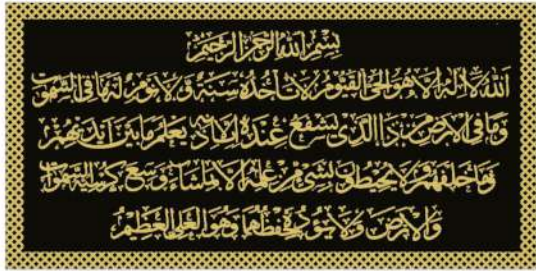 بِسْمِ اللهِ الرَّحْمٰنِ الرَّحِيْمِ
اَللهُ لَا اِلٰهَ اِلَّا هُوَ الْحَيُّ الْقَيُّوْمُ لَا تَأْخُذُهُ سِنَةٌ وَّلَا نَوْمٌ لَهُ مَا فِى السَّمٰوٰتِ
وَمَا فِى الْاَرْضِ مَنْ ذَا الَّذِىْ يَشْفَعُ عِنْدَهُ اِلَّا بِاِذْنِهِ يَعْلَمُ مَا بَيْنَ اَيْدِيْهِمْ
وَمَا خَلْفَهُمْ وَلَا يُحِيْطُوْنَ بِشَىْءٍ مِّنْ عِلْمِهِ اِلَّا بِمَا شَاءَ وَسِعَ كُرْسِيُّهُ السَّمٰوٰتِ
وَالْاَرْضَ وَلَا يَئُوْدُهُ حِفْظُهُمَا وَهُوَ الْعَلِىُّ الْعَظِيْمُ